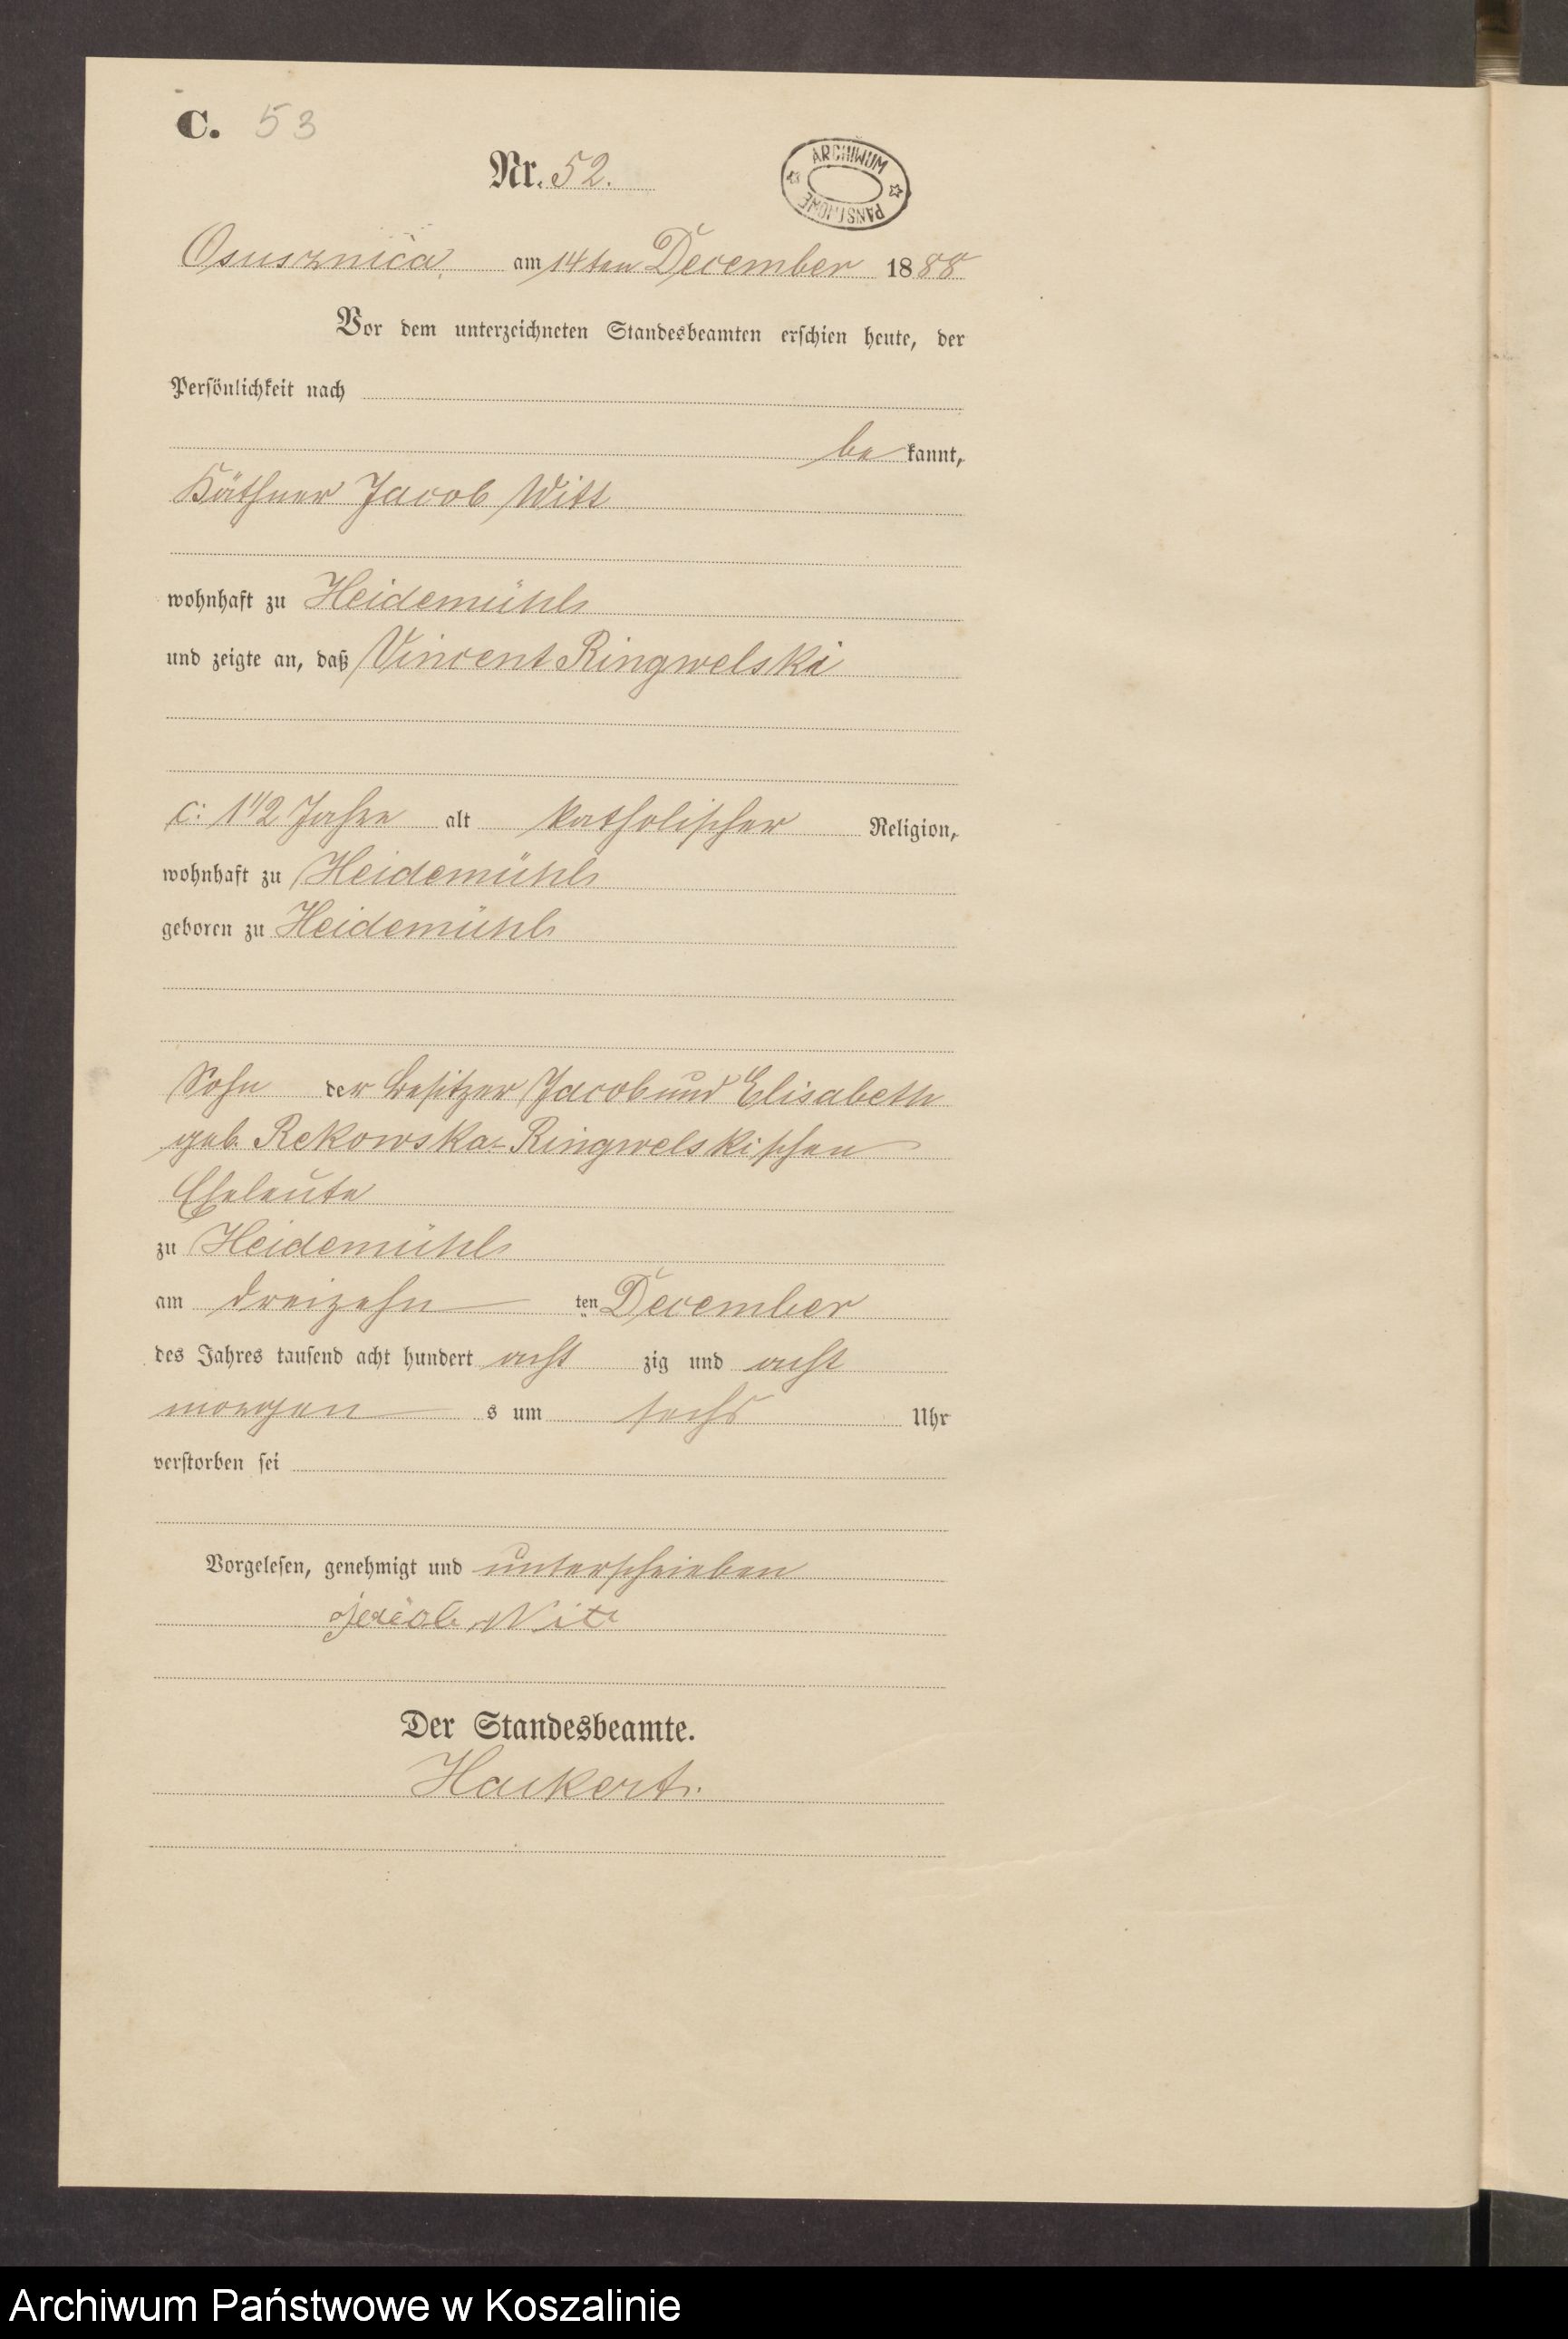 C. 53
Nr. 52.
ARCHIWUM
PAŃSTWOWE
Osusznica, am 14ten December 1888
Vor dem unterzeichneten Standesbeamten erschien heute, der
Persönlichkeit nach
be kannt,
Käthner Jacob Witt
wohnhaft zu Heidemühl
und zeigte an, daß Vincent Ringwelski
c: 1 1/2 Jahre alt katholischer Religion,
wohnhaft zu Heidemühl
geboren zu Heidemühl
Sohn der Besitzer Jacob und Elisabeth
geb. Rekowska-Ringwelskischen
Eheleute
zu Heidemühl
am dreizehn ten December
des Jahres tausend acht hundert acht zig und acht
morgen s um sechs Uhr
verstorben sei
Vorgelesen, genehmigt und unterschrieben
Jacob Witt
Der Standesbeamte.
Hackert.
Archiwum Państwowe w Koszalinie